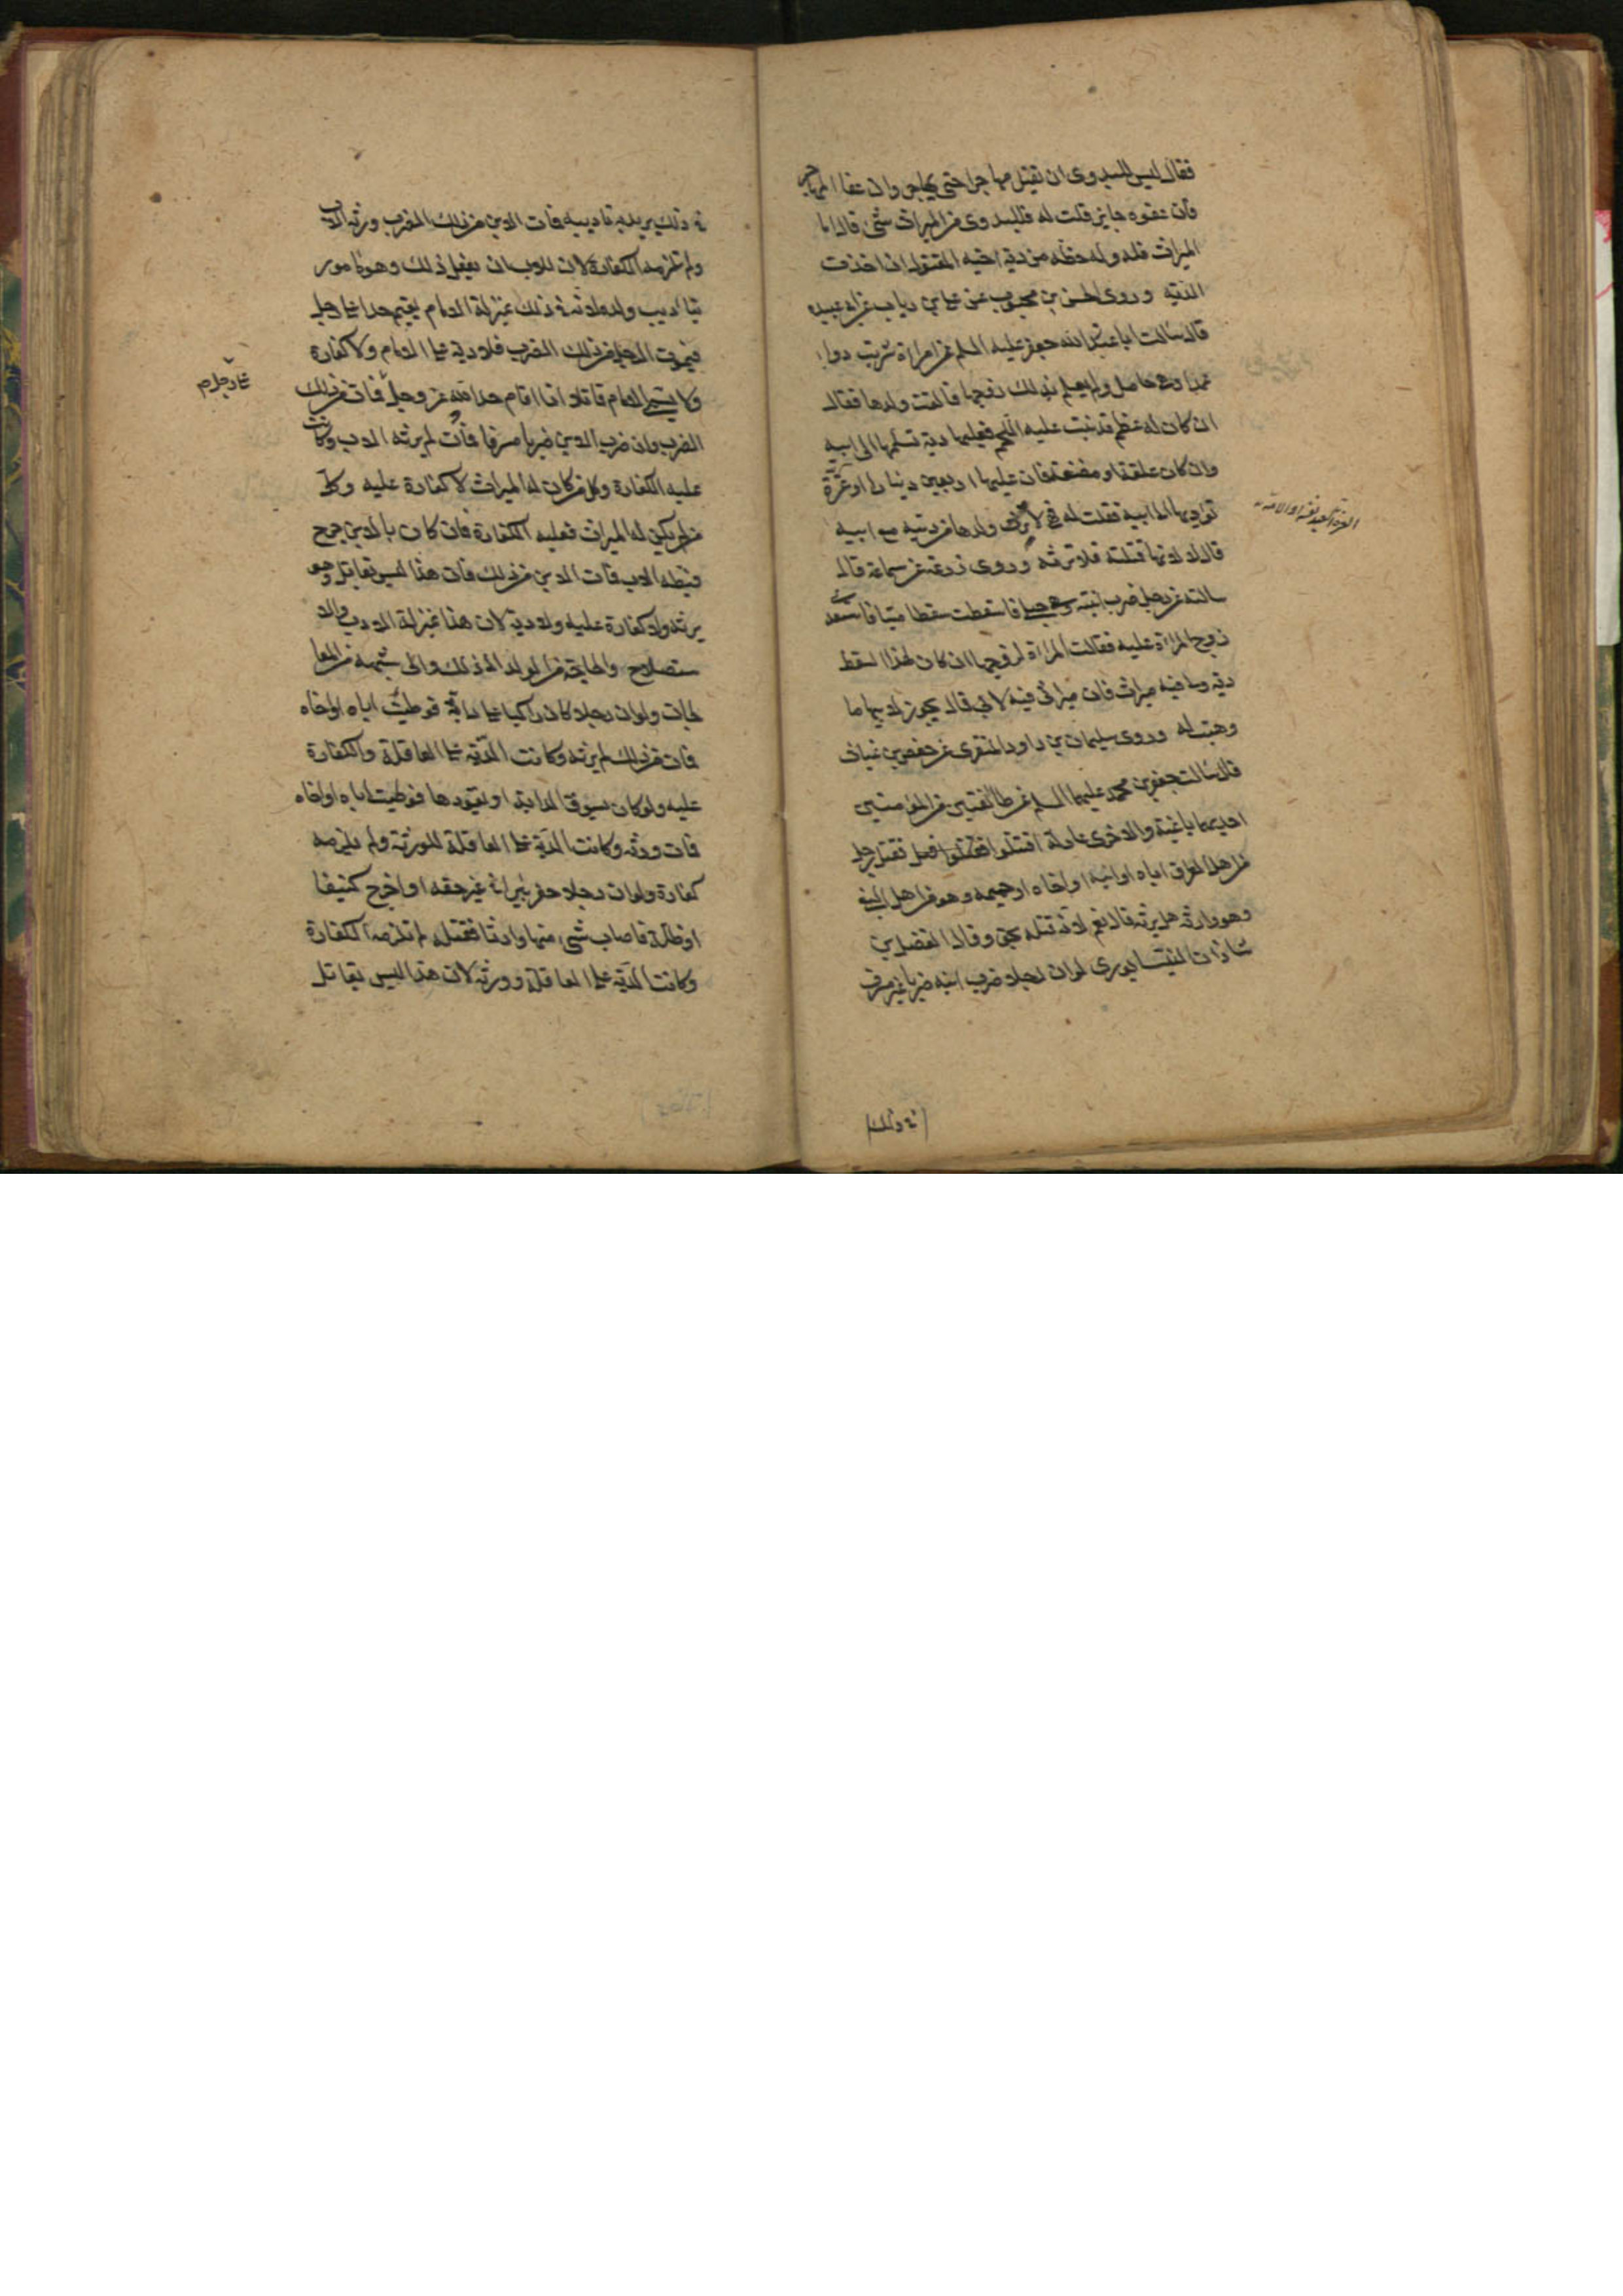 فقال ليس للبدوى ان يقتل مهاجرا حتى يهاجر وان عفا المهاجر
فان عفوه جايز قلت له فللبدوى من الميراث شئ قال اما
الميراث فله وله حظه من دية اخيه المقتول ان اخذت
الدية وروى الحسن بن محبوب عن على بن رياب عن ابى عبيدة
قال سالت ابا عبدالله جعفر عليه السلم عن امراة شربت دواء
عمدا وهى حامل ولم يعلم بذلك زوجها فالقت ولدها فقال
ان كان له عظم قد نبت عليه اللحم فعليها دية تسلمها الى ابيه
وان كان علقة او مضغة فان عليها اربعين دينارا او غرة
تؤديها الى ابيه فقلت له فهى لا ترث ولدها من ديته مع ابيه
قال لا لانها قتلته فلا ترثه وروى زرعة عن سماعة قال
سالته عن رجل ضرب ابنته وهى حبلى فاسقطت سقطا ميتا فاستعدى
زوج المراة عليه فقالت المراة لزوجها ان كان لهذا السقط
دية ولى فيه ميراث فان ميراثى فيه لابى قال يجوز لابيها ما
وهبت له وروى سليمان بن داود المنقرى عن حفص بن غياث
قال سالت جعفر بن محمد عليهما السلم عن طائفتين من المؤمنين
احديهما باغية والاخرى عادلة اقتتلوا فقتل رجل
من اهل العراق اباه او ابنه او اخاه او حميمه وهو من اهل البغى
وهو وارثه هل يرثه قال نعم لانه قتله بحق وقال الفضل بن
شاذان النيسابورى لو ان رجلا ضرب ابنه ضربا غير مسرف
فى ذلك
فى ذلك يريد به تاديبه فمات الابن من ذلك الضرب ورثه الاب
ولم تلزمه الكفارة لان للاب ان يفعل ذلك وهو مامور
بتاديب ولده لانه فى ذلك بمنزلة الامام يقيم حدا على رجل
فيموت الرجل من ذلك الضرب فلا دية على الامام ولا كفارة
ولا يسمى الامام قاتلا اذا اقام حدا لله عز وجل فمات من ذلك
على رجل
الضرب وان ضرب الابن ضربا مسرفا فمات لم يرثه الاب وكانت
عليه الكفارة وكل من كان له الميراث لا كفارة عليه وكل
من لم يكن له الميراث فعليه الكفارة فان كان بالابن جرح
فبطه الاب فمات الابن من ذلك فان هذا ليس بقاتل وهو
يرثه ولا كفارة عليه ولا دية لان هذا بمنزلة الادب والا
ستصلاح والحاجة من الولد الى ذلك والى شبهه من المعا
لجات ولو ان رجلا كان راكبا على دابة فوطيت اباه او اخاه
فمات من ذلك لم يرثه وكانت الدية على العاقلة والكفارة
عليه ولو كان يسوق الدابة او يقودها فوطيت اباه او اخاه
فمات ورثه وكانت الدية على العاقلة للورثة ولم يلزمه
كفارة ولو ان رجلا حفر بئرا فى غير حقه او اخرج كنيفا
او ظلة فاصاب شئ منها وارثا فقتله لم تلزمه الكفارة
وكانت الدية على العاقلة وورثه لان هذا ليس بقاتل